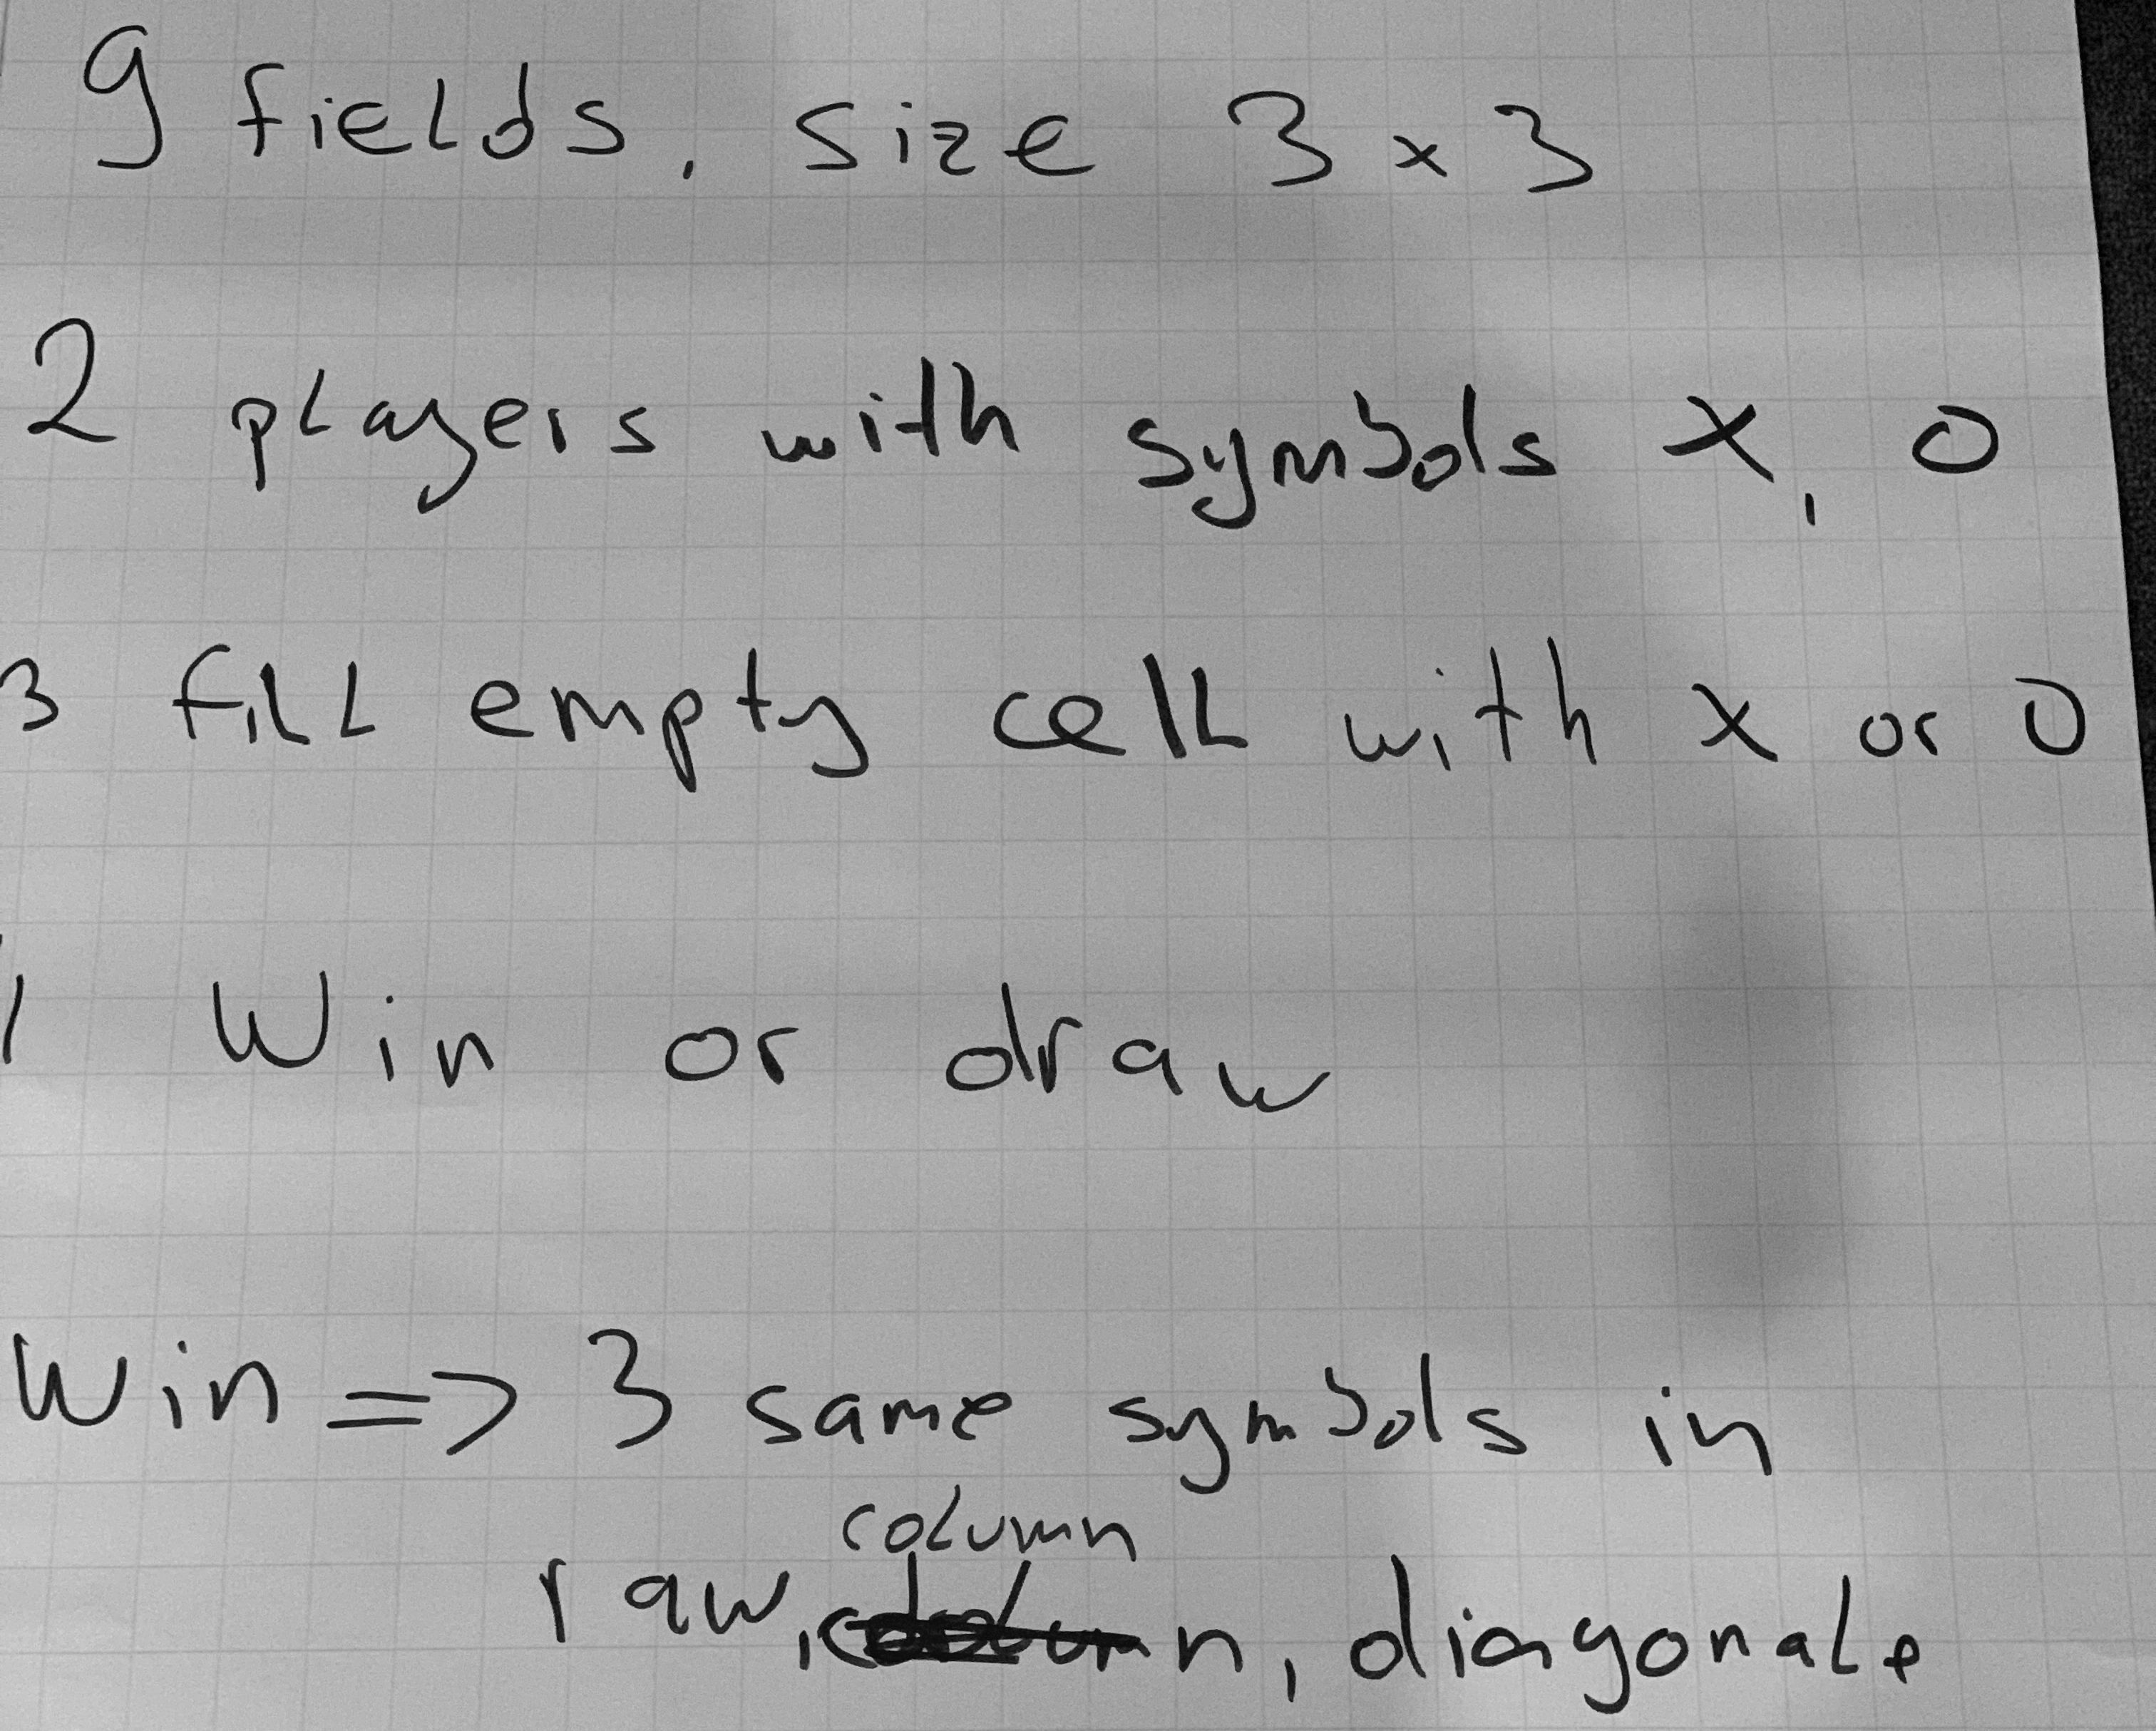 9 fields, size 3 x 3
2 players with symbols x, 0
3 fill empty cell with x or 0
Win or draw
Win => 3 same symbols in
column
raw, diagonale